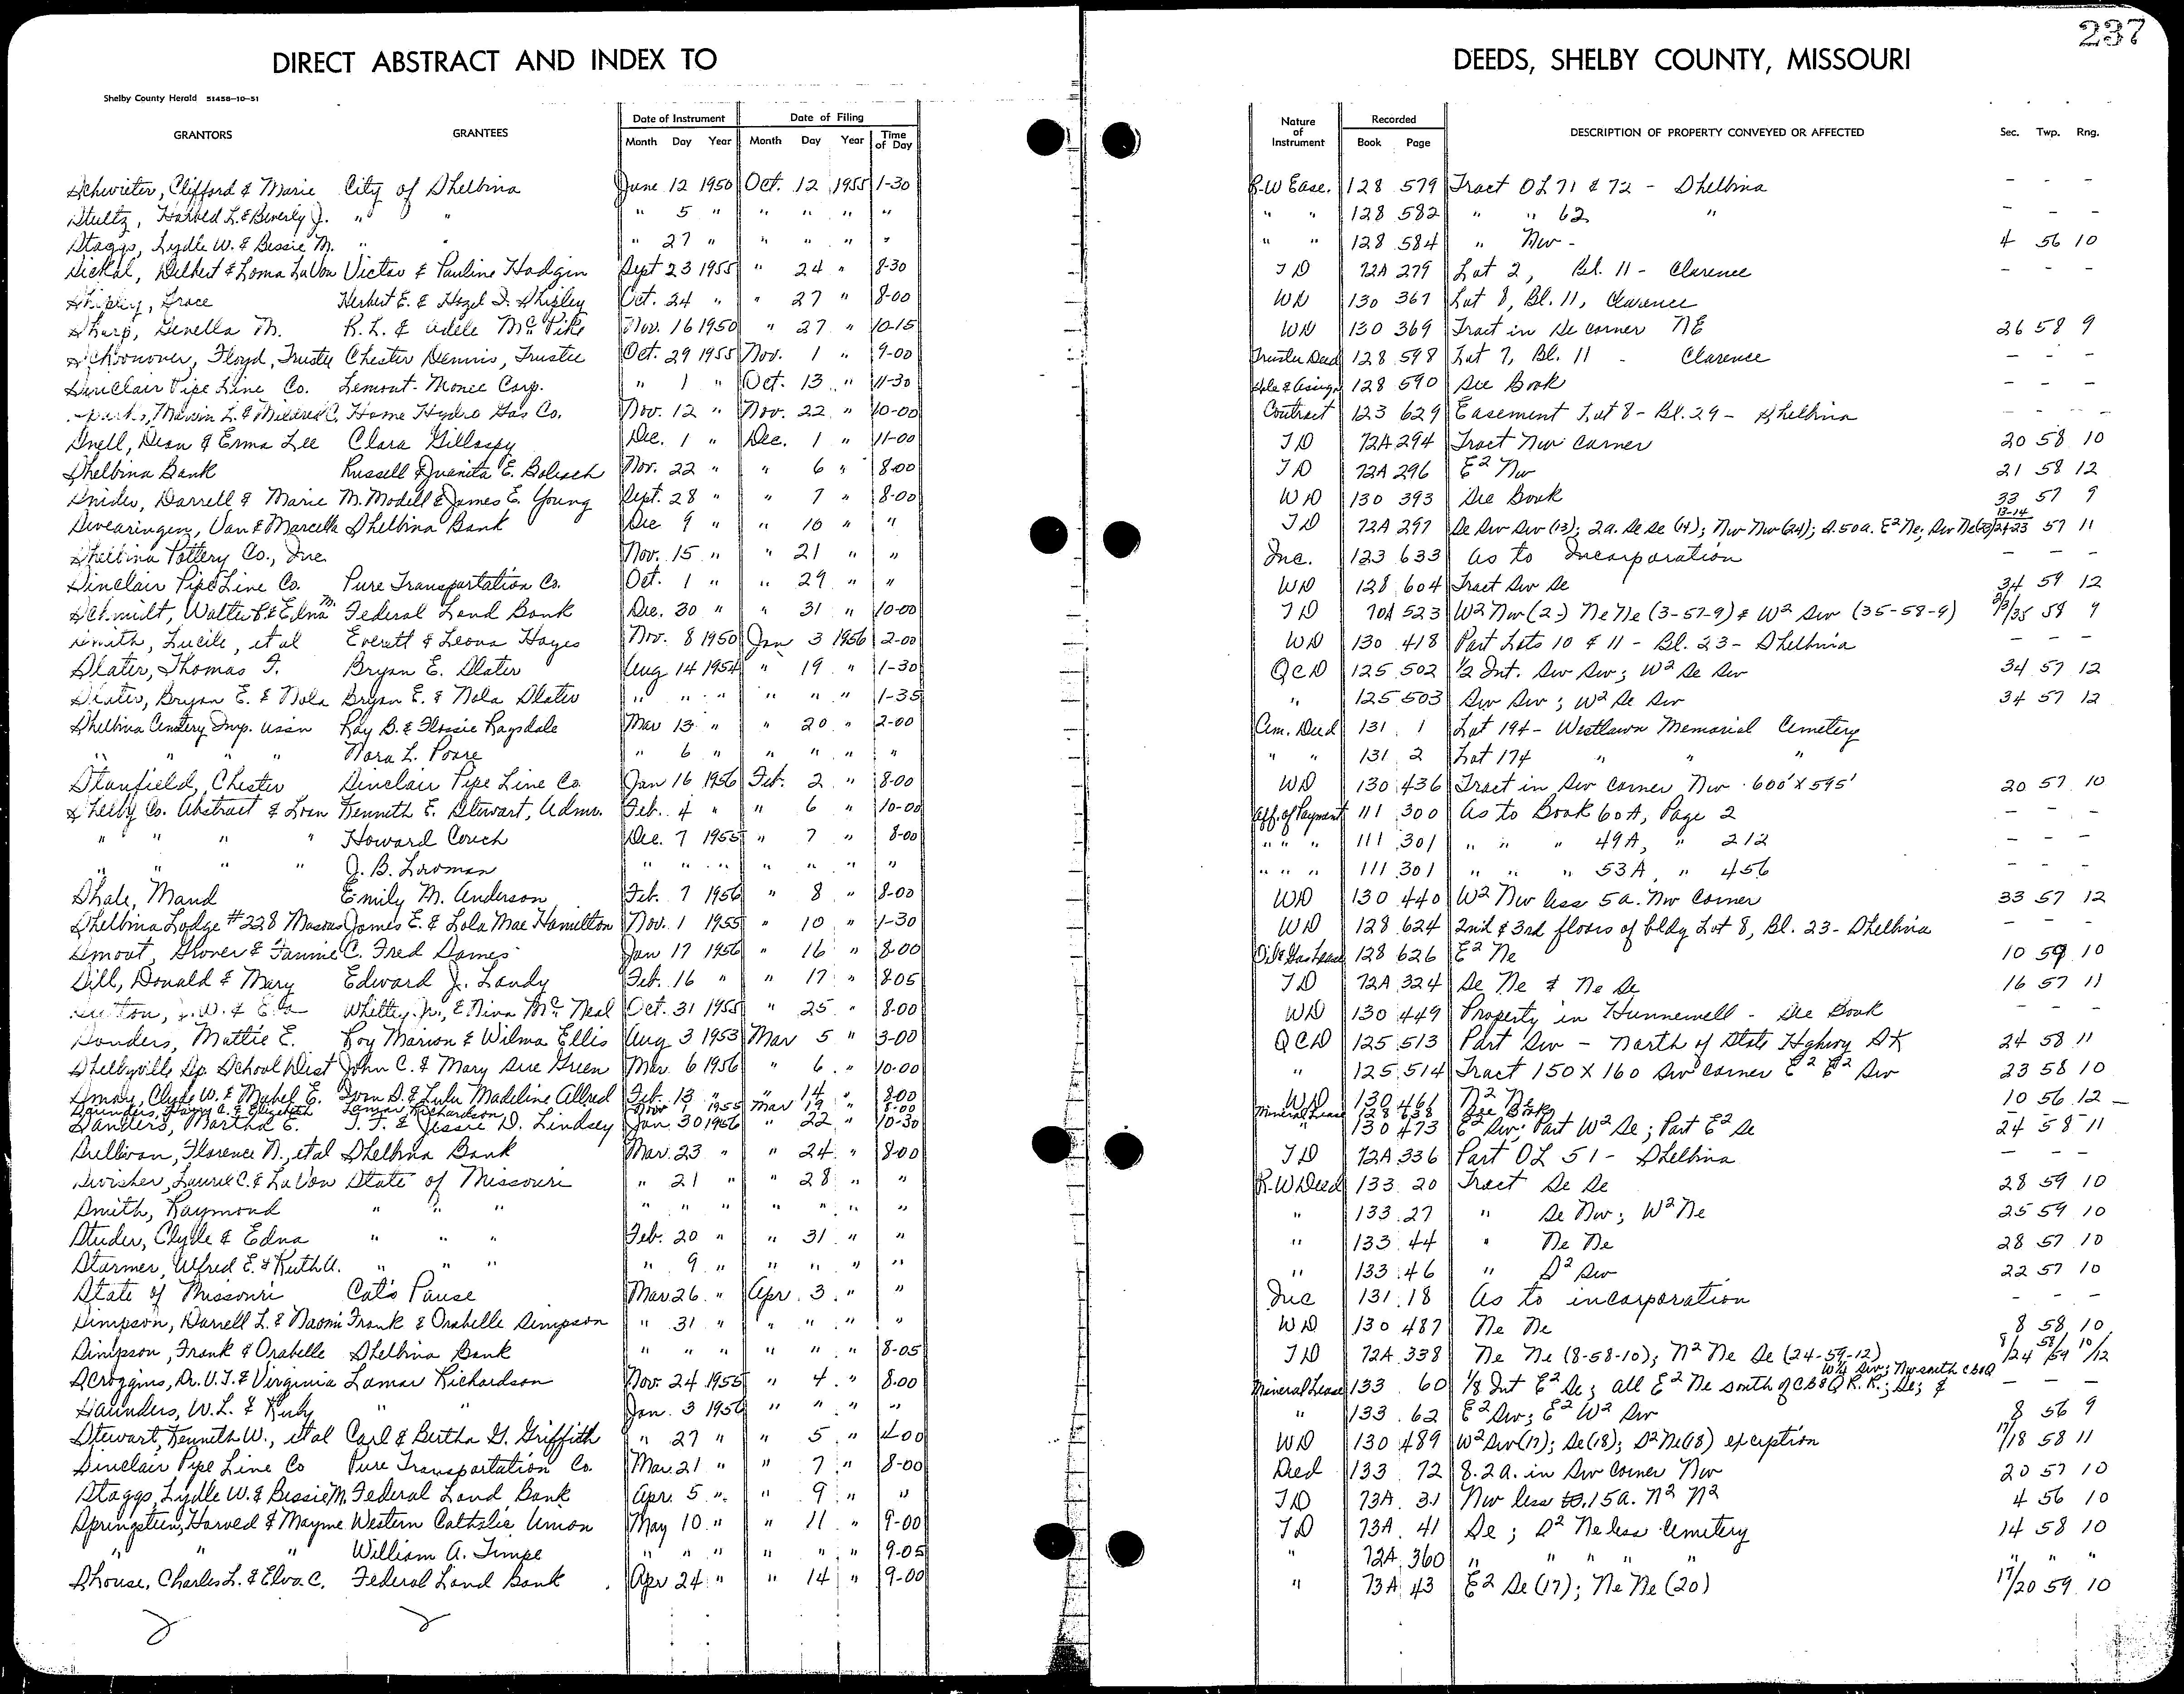 237
DIRECT ABSTRACT AND INDEX TO DEEDS, SHELBY COUNTY, MISSOURI
Shelby County Herald 51458-10-51
GRANTORS GRANTEES Date of Instrument Month Day Year Date of Filing Month Day Year Time of Day Nature of Instrument Recorded Book Page DESCRIPTION OF PROPERTY CONVEYED OR AFFECTED Sec. Twp. Rng.
Schwieter, Clifford & Marie City of Shelbina June 12 1950 Oct. 12 1955 1-30 R-W Ease. 128 579 Tract OL 71 & 72 - Shelbina - - -
Stultz, Harold L. & Beverly J. " " " 5 " " " " " " " 128 582 " " 62 " - - -
Staggs, Lydle W. & Bessie M. " " " 27 " " " " " " " 128 584 " Nw - 4 56 10
Sickal, Delbert & Loma LaVon Victor & Pauline Hodgin Sept 23 1955 " 24 " 8-30 TD 72A 279 Lot 2, Bl. 11 - Clarence - - -
Shipley, Grace Herbert E. & Hazel I. Shipley Oct. 24 " " 27 " 8-00 WD 130 367 Lot 8, Bl. 11, Clarence
Sharp, Genella M. R. L. & Adele McPike Nov. 16 1950 " 27 " 10-15 WD 130 369 Tract in Se corner NE 26 58 9
Schoonover, Floyd, Trustee Chester Dennis, Trustee Oct. 29 1955 Nov. 1 " 9-00 Trustee Deed 128 598 Lot 7, Bl. 11 - Clarence - - -
Sinclair Pipe Line Co. Lemont-Monee Corp. " 1 " Oct. 13 " 11-30 Sale & Assign 128 590 See Book - - -
Marvin L. & Mildred C. Home Hydro Gas Co. Nov. 12 " Nov. 22 " 10-00 Contract 123 629 Easement Lot 8 - Bl. 29 - Shelbina - - -
Snell, Dean & Erma Lee Clara Gillaspy Dec. 1 " Dec. 1 " 11-00 TD 72A 294 Tract Nw corner 20 58 10
Shelbina Bank Russell & Juanita E. Nov. 22 " " 6 " 8-00 TD 72A 296 E2 Nw 21 58 12
Snider, Darrell & Marie M. Modell & James E. Young Sept. 28 " " 7 " 8-00 WD 130 393 See Book 33 57 9
Swearingen, Van & Marcella Shelbina Bank Dec 9 " " 10 " " TD 72A 297 Se Sw Sw (13); 2a. Se Se (14); Nw Nw (24); S. 50a. E2 Ne; Sw Ne (23) 13-14/24-23 57 11
Shelbina Pottery Co., Inc. Nov. 15 " " 21 " " Inc. 123 633 As to Incorporation - - -
Sinclair Pipe Line Co. Pure Transportation Co. Oct. 1 " " 29 " " WD 128 604 Tract Sw Se 34 59 12
Schmidt, Walter & Edna M. Federal Land Bank Dec. 30 " " 31 " 10-00 TD 70A 523 W2 Nw (2-) Ne Ne (3-57-9) & W2 Sw (35-58-9) 2/3/35 58 9
Smith, Lucile, et al Everett & Leona Hayes Nov. 8 1950 Jan 3 1956 2-00 WD 130 418 Part Lots 10 & 11 - Bl. 23 - Shelbina - - -
Slater, Thomas F. Bryan E. Slater Aug 14 1954 " 19 " 1-30 QCD 125 502 1/2 Int. Sw Sw; W2 Se Sw 34 57 12
Slater, Bryan E. & Nola Bryan E. & Nola Slater " " " " " " 1-35 " 125 503 Sw Sw; W2 Se Sw 34 57 12
Shelbina Cemetery Imp. Assn Ray B. & Flossie Ragsdale Mar 13 " " 20 " 2-00 Cem. Deed 131 1 Lot 194 - Westlawn Memorial Cemetery
" " " " Nora L. Poore " 6 " " " " " " " 131 2 Lot 174 " " "
Stanfield, Chester Sinclair Pipe Line Co. Jan 16 1956 Feb. 2 " 8-00 WD 130 436 Tract in Sw corner Nw 600' X 595' 20 57 10
Shelby Co. Abstract & Loan Kenneth E. Stewart, Admr. Feb. 4 " " 6 " 10-00 Aff. of Payment 111 300 As to Book 60A, Page 2 - - -
" " " " Howard Couch Dec. 7 1955 " 7 " 8-00 " " " 111 301 " " " 49A, " 212 - - -
" " " " J. B. Lowman " " " " " " " " " " 111 301 " " " 53A, " 456 - - -
Shale, Maud Emily M. Anderson Feb. 7 1956 " 8 " 8-00 WD 130 440 W2 Nw less 5a. Nw Corner 33 57 12
Shelbina Lodge #228 Masons James E. & Lola Mae Hamilton Nov. 1 1955 " 10 " 1-30 WD 128 624 2nd & 3rd floors of bldg Lot 8, Bl. 23 - Shelbina - - -
Smoot, Grover & Fannie C. Fred Dames Jan 17 1956 " 16 " 8-00 Oil & Gas Lease 128 626 E2 Ne 10 59 10
Sill, Donald & Mary Edward J. Landy Feb. 16 " " 17 " 8-05 TD 72A 324 Se Ne & Ne Se 16 57 11
Whitley, Jr., & Niva McNeal Oct. 31 1955 " 25 " 8-00 WD 130 449 Property in Hunnewell - See Book - - -
Sanders, Mattie E. Roy Marion & Wilma Ellis Aug 3 1953 Mar 5 " 3-00 QCD 125 513 Part Sw - North of State Highway SK 24 58 11
Shelbyville Sp. School Dist John C. & Mary Sue Green Mar. 6 1956 " 6 " 10-00 " 125 514 Tract 150 X 160 Sw corner E2 E2 Sw 23 58 10
Smock, Clyde W. & Mabel E. & Lulu Madeline Allred Feb. 13 " " 14 " 8-00 WD 130 461 N2 Ne 10 56 12
Saunders, Harry A. & Elizabeth Lamar Richardson Nov 1 1955 Mar 19 " 8-00 Mineral Lease 128 638 See Book
Sanders, Martha E. T. F. & Jessie D. Lindsey Jan. 30 1956 " 22 " 10-30 " 130 473 E2 Sw; Part W2 Se; Part E2 Se 24 58 11
Sullivan, Florence N., et al Shelbina Bank Mar. 23 " " 24 " 8-00 TD 72A 336 Part OL 51 - Shelbina - - -
Swisher, Laurie C. & LaVon State of Missouri " 21 " " 28 " " R-W Deed 133 20 Tract Se Se 28 59 10
Smith, Raymond " " " " " " " " " " " 133 27 " Se Nw; W2 Ne 25 59 10
Studer, Clyde & Edna " " " Feb. 20 " " 31 " " " 133 44 " Ne Ne 28 57 10
Starmer, Alfred E. & Ruth A. " " " " 9 " " " " " " 133 46 " S2 Sw 22 57 10
State of Missouri Cat's Pause Mar 26 " Apr. 3 " " Inc 131 18 As to incorporation - - -
Simpson, Darrell L. & Naomi Frank & Orabelle Simpson " 31 " " " " " WD 130 487 Ne Ne 8 58 10
Simpson, Frank & Orabelle Shelbina Bank " " " " " " 8-05 TD 72A 338 Ne Ne (8-58-10); N2 Ne Se (24-59-12) 8/24 58/59 10/12
Scroggins, Dr. V. T. & Virginia Lamar Richardson Nov. 24 1955 " 4 " 8-00 Mineral Lease 133 60 1/8 Int E2 Se; all E2 Ne south of CB&Q R.R.; Se; & W1/2 Sw; Nw south CB&Q - - -
Saunders, W. L. & Ruby " " Jan. 3 1956 " " " " " 133 62 E2 Sw; E2 W2 Sw 8 56 9
Stewart, Kenneth W., et al Carl & Bertha G. Griffith " 27 " " 5 " 4-00 WD 130 489 W2 Sw (17); Se (18); S2 Ne (18) exception 17/18 58 11
Sinclair Pipe Line Co Pure Transportation Co. Mar. 21 " " 7 " 8-00 Deed 133 72 8.2 a. in Sw Corner Nw 20 57 10
Staggs, Lydle W. & Bessie M. Federal Land Bank Apr. 5 " " 9 " " TD 73A 31 Nw less .15a. N2 N2 4 56 10
Springsteen, Harved & Mayme Western Catholic Union May 10 " " 11 " 9-00 TD 73A 41 Se; S2 Ne less Cemetery 14 58 10
" " " William A. Timpe " " " " " " 9-05 " 72A 360 " " " " " " " "
Shouse, Charles L. & Elva C. Federal Land Bank Apr 24 " " 14 " 9-00 " 73A 43 E2 Se (17); Ne Ne (20) 17/20 59 10